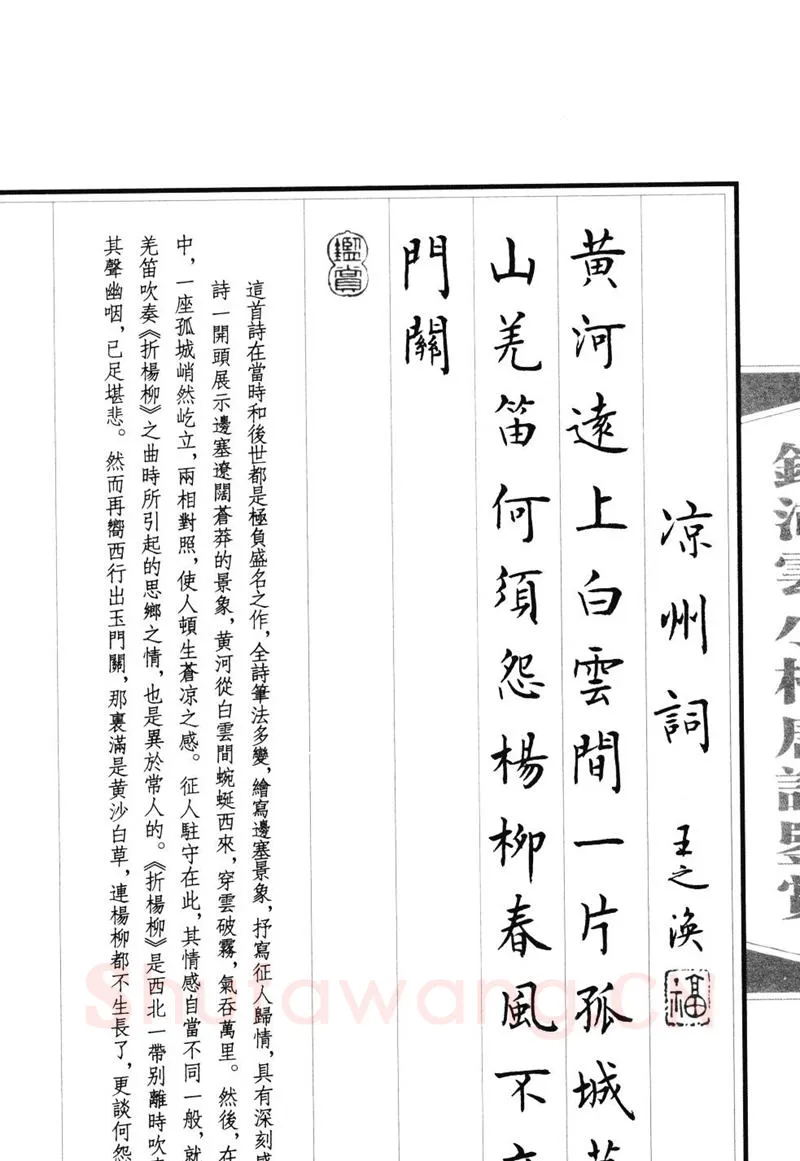 凉州詞 王之渙
福
黄河遠上白雲間一片孤城
山羌笛何須怨楊柳春風不
門關
鑑賞
這首詩在當時和後世都是極負盛名之作，全詩筆法多變，繪寫邊塞景象，抒寫征人歸情，具有深刻
詩一開頭展示邊塞遼闊蒼莽的景象，黄河從白雲間蜿蜒西來，穿雲破霧，氣吞萬里。然後，在
中，一座孤城峭然屹立，兩相對照，使人頓生蒼凉之感。征人駐守在此，其情感自當不同一般，就
羌笛吹奏《折楊柳》之曲時所引起的思鄉之情，也是異於常人的。《折楊柳》是西北一帶别離時吹
其聲幽咽，已足堪悲。然而再嚮西行出玉門關，那裏滿是黄沙白草，連楊柳都不生長了，更談何怨
Shufawang.cn